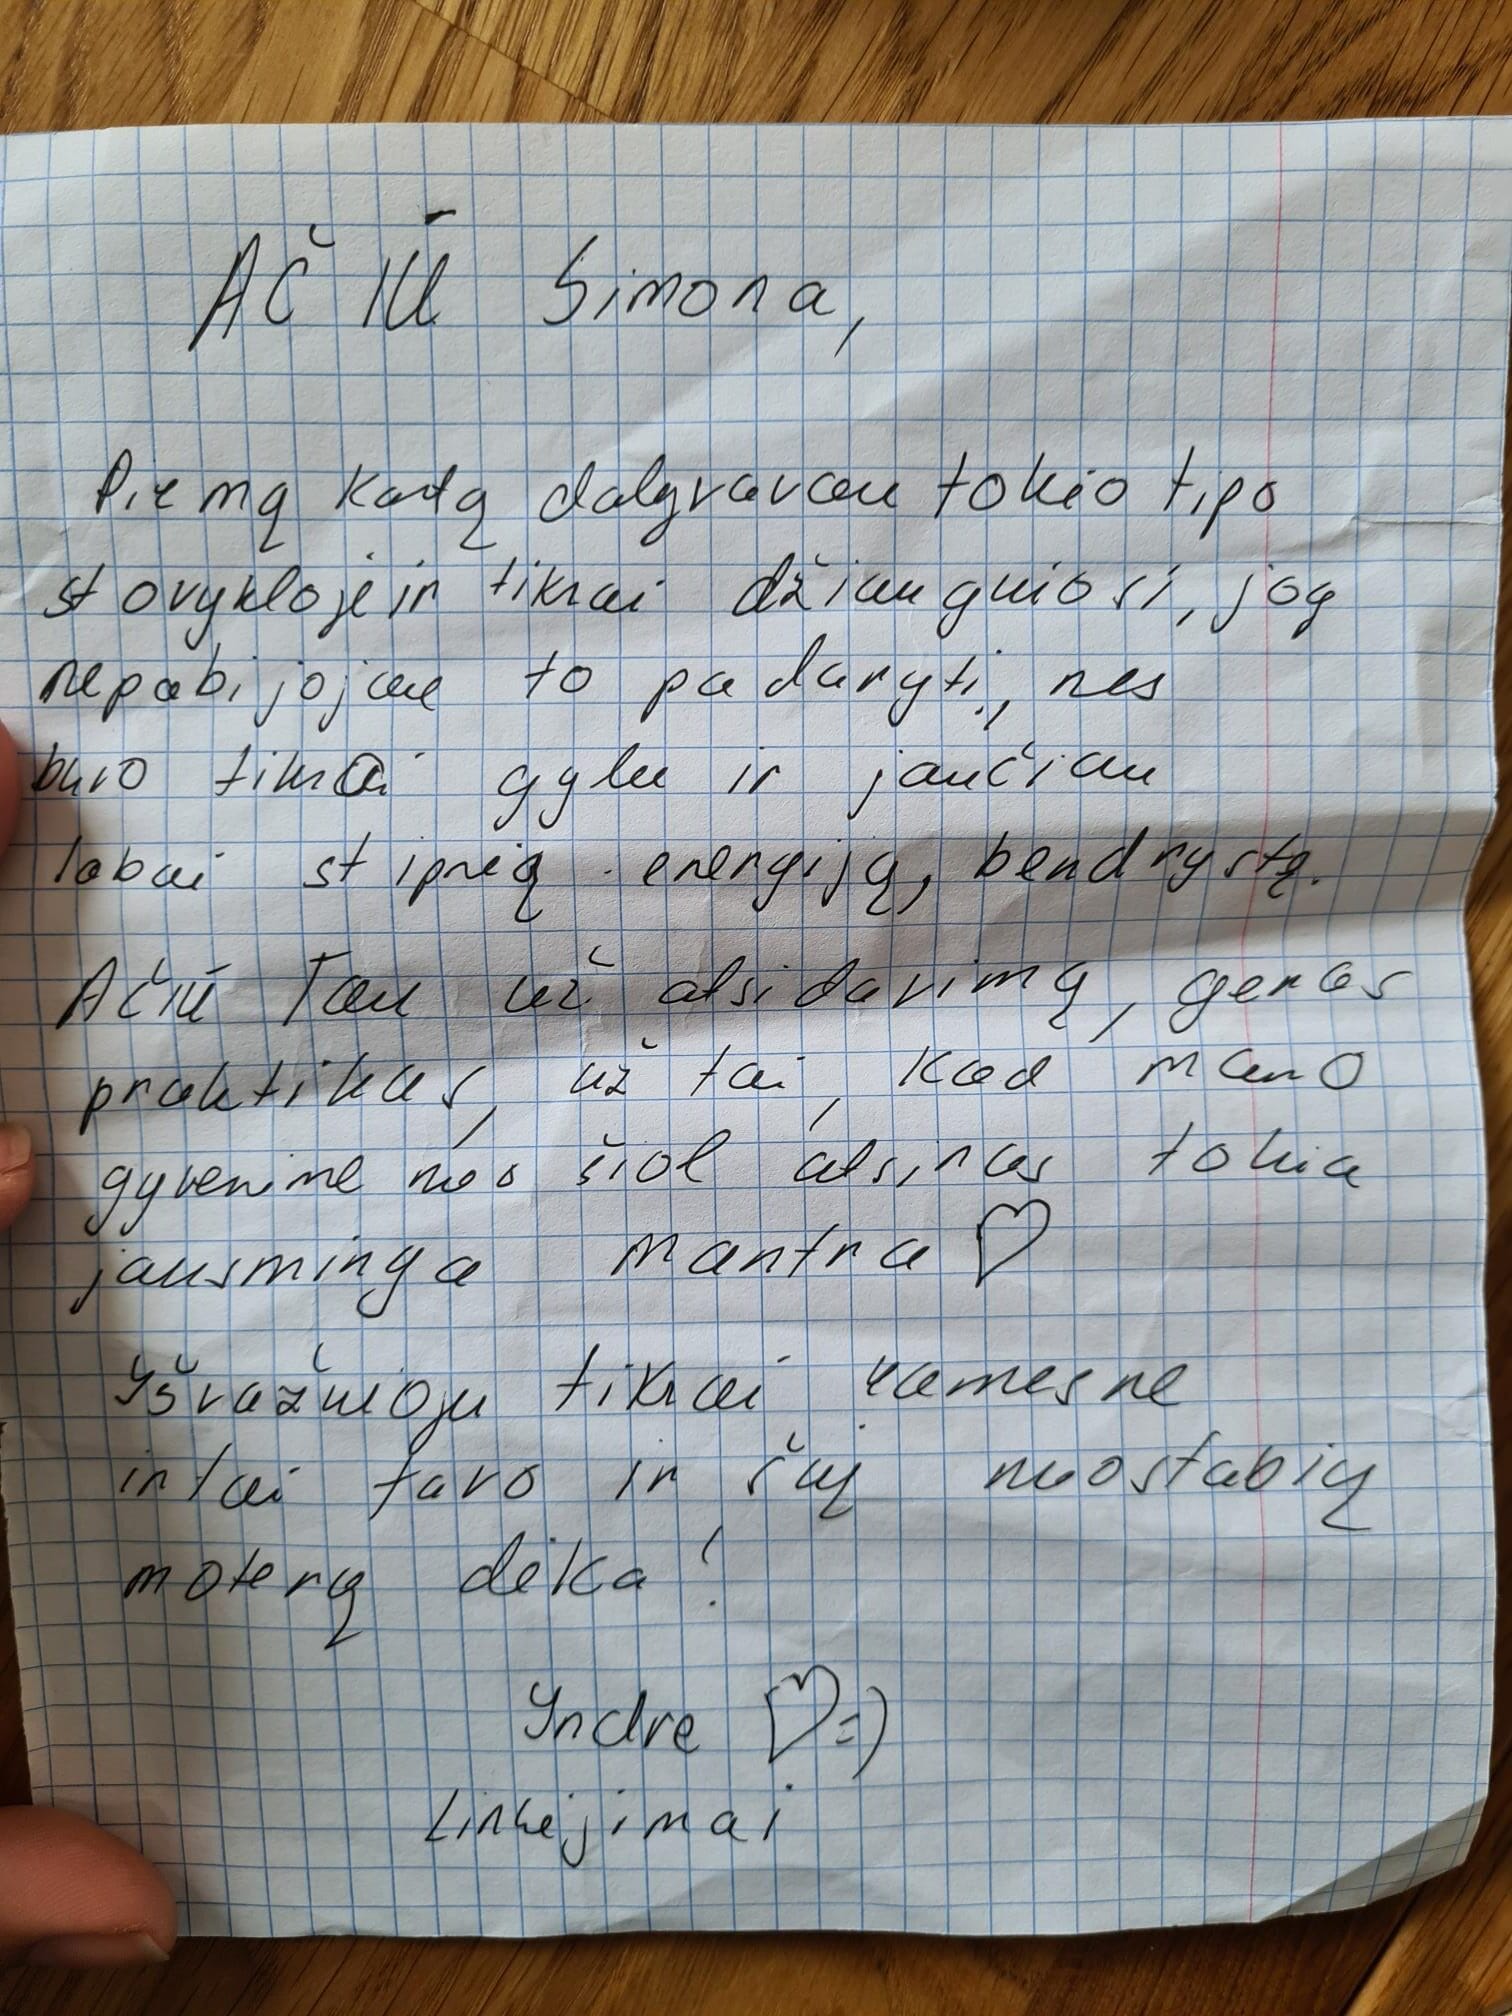 AČIŪ Simona,
Pirmą kartą dalyvavau tokio tipo
stovykloje ir tikrai džiaugiuosi, jog
nepabijojau to padaryti, nes
buvo tikrai gylu ir jaučiau
labai stiprią energiją, bendrystę.
Ačiū Tau už atsidavimą, geras
praktikas, už tai, kad mano
gyvenime nuo šiol atsiras tokia
jausminga mantra ♡
Išvažiuoju tikrai ramesnė
ir tai tavo ir šių nuostabių
moterų dėka!
Indre ♡=)
Linkėjimai